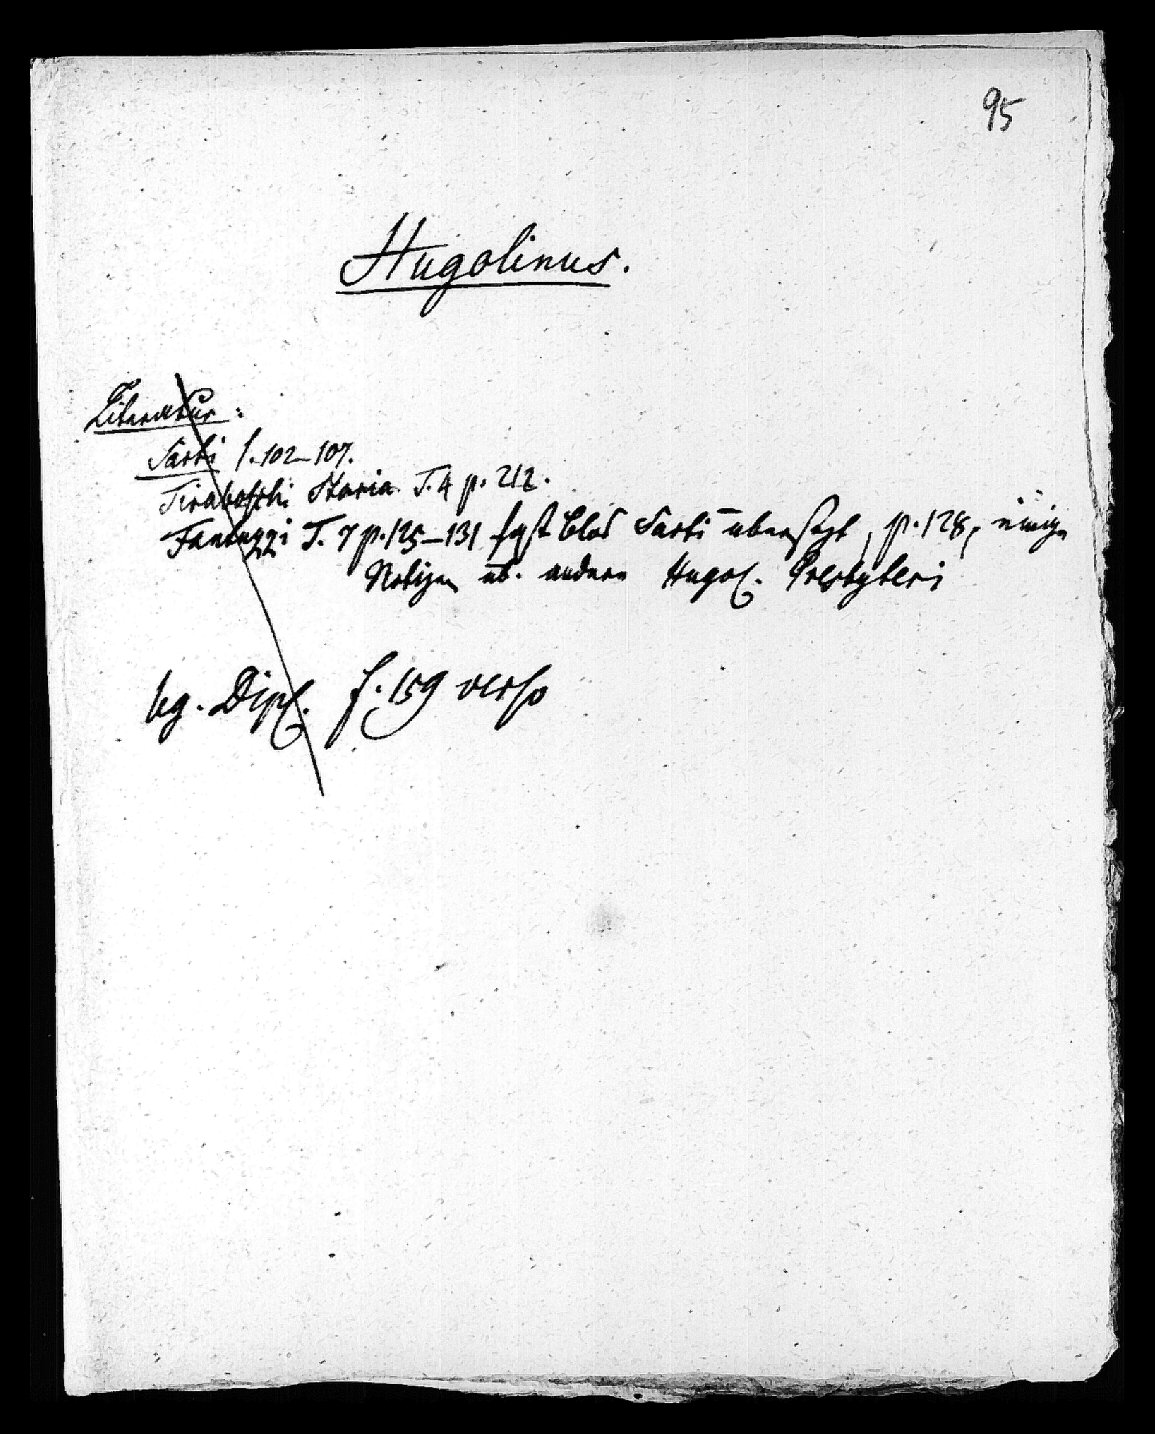 95
Hugolinus.
Literatur:
Sarti p. 102–107.
Tiraboschi Storia T. 4 p. 212.
Fantuzzi T. 7 p. 125–131 fast blos Sarti übersetzt, p. 128, einige
Notizen üb. andere Hugol. Presbyteri
Dipl. f. 159 verso